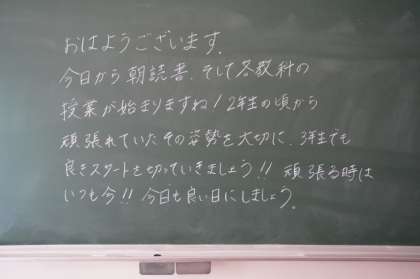 おはようございます。
今日から朝読書、そして各教科の
授業が始まりますね！2年生の頃から
頑張れていたその姿勢を大切に、3年生でも
良きスタートを切っていきましょう!! 頑張る時は
いつも今!! 今日も良い日にしましょう。